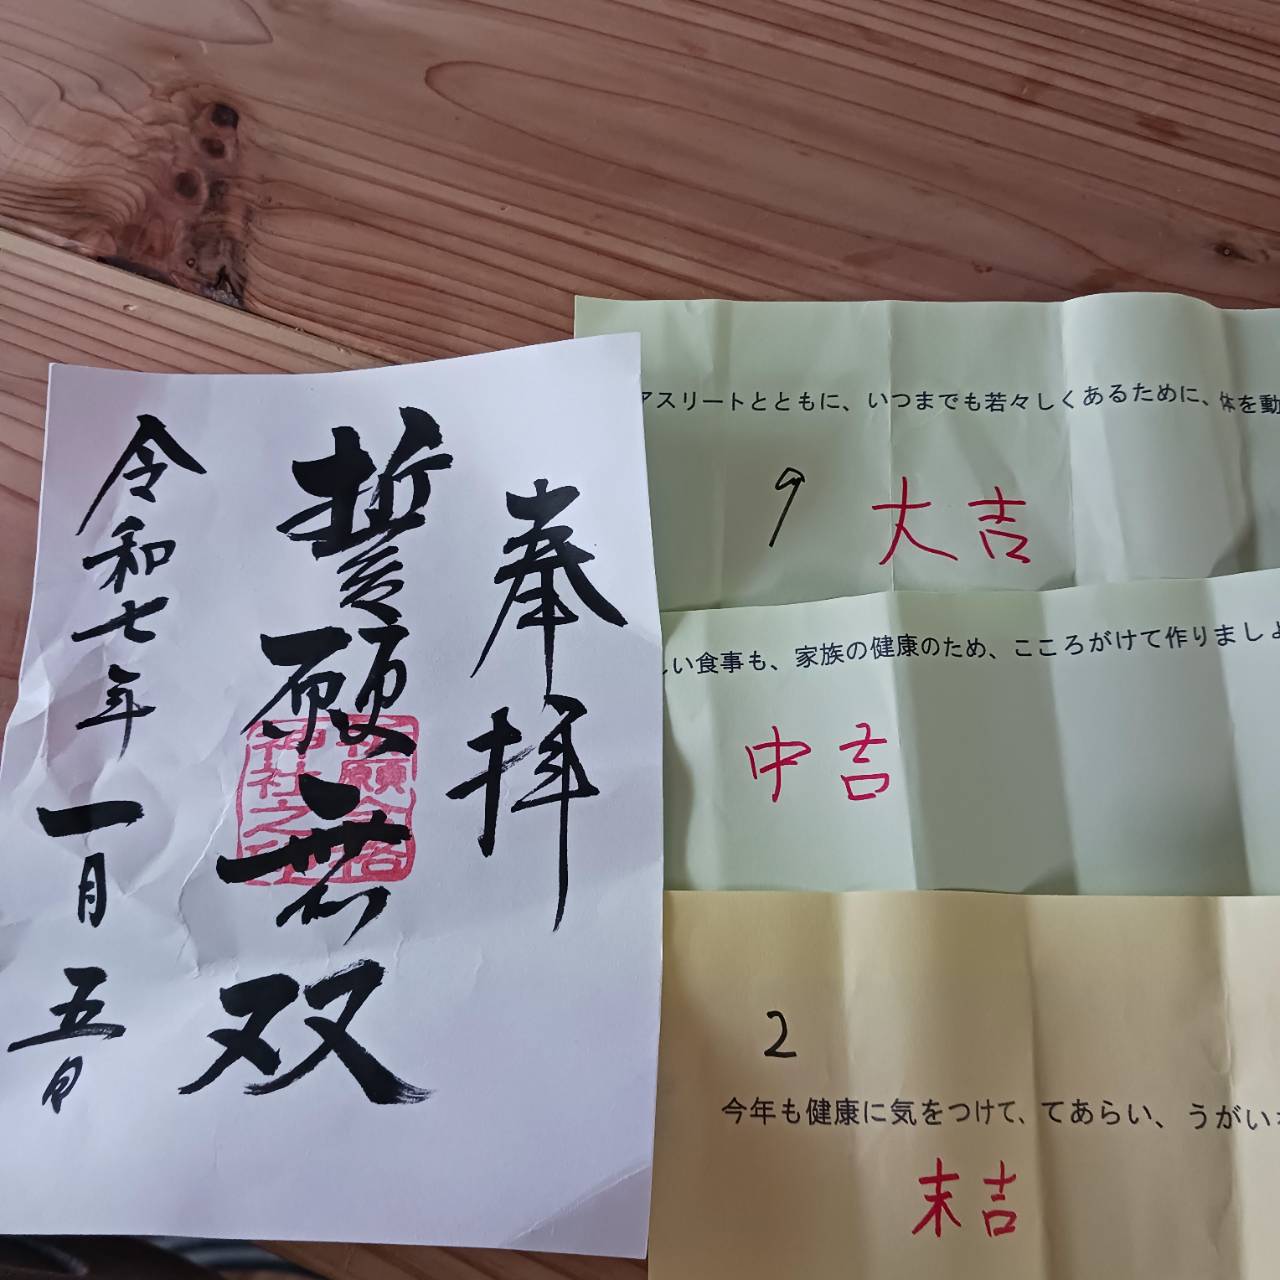 奉拝
誓願無双
令和七年一月五日
神社之印
アスリートとともに、いつまでも若々しくあるために、体を動
9
大吉
しい食事も、家族の健康のため、こころがけて作りましょ
中吉
2
今年も健康に気をつけて、てあらい、うがい
末吉